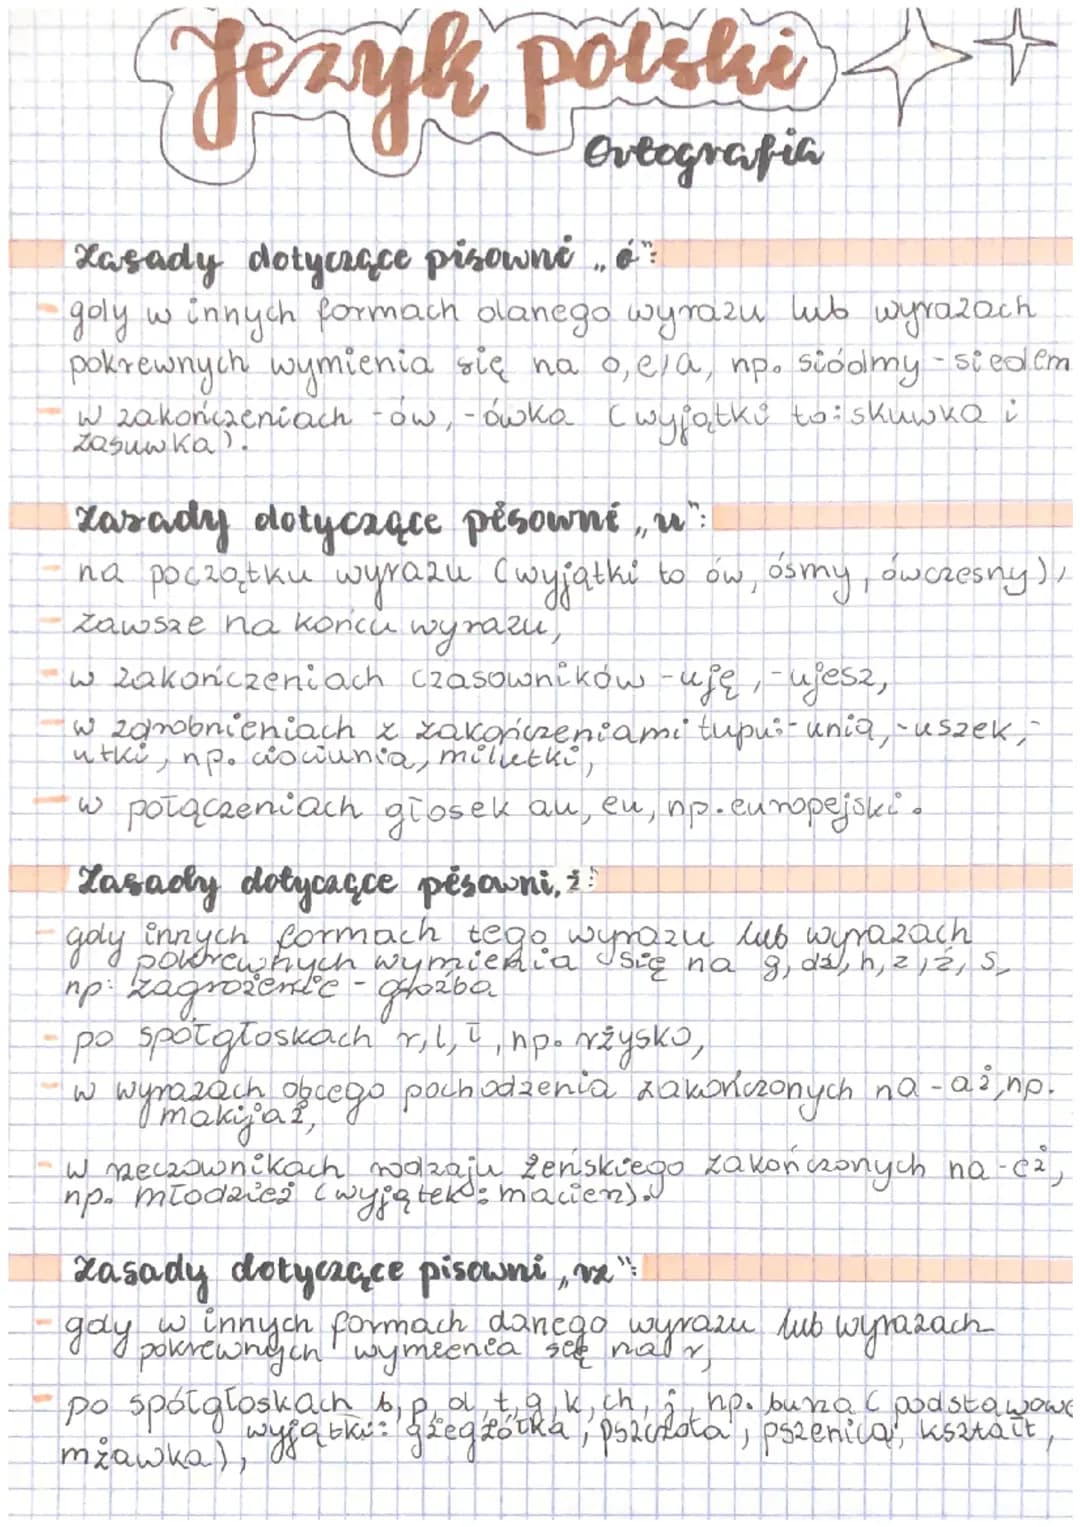 Język polski
Ortografia
Zasady dotyczące pisowni „ó":
- gdy w innych formach danego wyrazu lub wyrazach
pokrewnych wymienia się na o, e, a, np. siódmy - siedem
- w zakończeniach -ów, -ówka (wyjątki to: skuwka i
zasuwka).
Zasady dotyczące pisowni „u":
- na początku wyrazu (wyjątki to ów, ósmy, ówczesny),
- zawsze na końcu wyrazu,
- w zakończeniach czasowników -uję, -ujesz,
- w zdrobnieniach z zakończeniami typu: -unia, -uszek, -
utki, np. ciociunia, milutki,
- w połączeniach głosek au, eu, np. europejski.
Zasady dotyczące pisowni „ż:
- gdy innych formach tego wyrazu lub wyrazach
pokrewnych wymienia się na g, dz, h, z, ź, s,
np: zagrożenie - groźba
- po spółgłoskach r, l, ł, np. rżysko,
- w wyrazach obcego pochodzenia zakończonych na -aż, np.
makijaż,
- w rzeczownikach rodzaju żeńskiego zakończonych na -eż,
np. młodzież (wyjątek: macierz).
Zasady dotyczące pisowni „rz":
- gdy w innych formach danego wyrazu lub wyrazach
pokrewnych wymienia się na r,
- po spółgłoskach b, p, d, t, g, k, ch, j, np. burza (podstawowe
wyjątki: gżegżółka, pszczoła, pszenica, kształt,
mżawka),